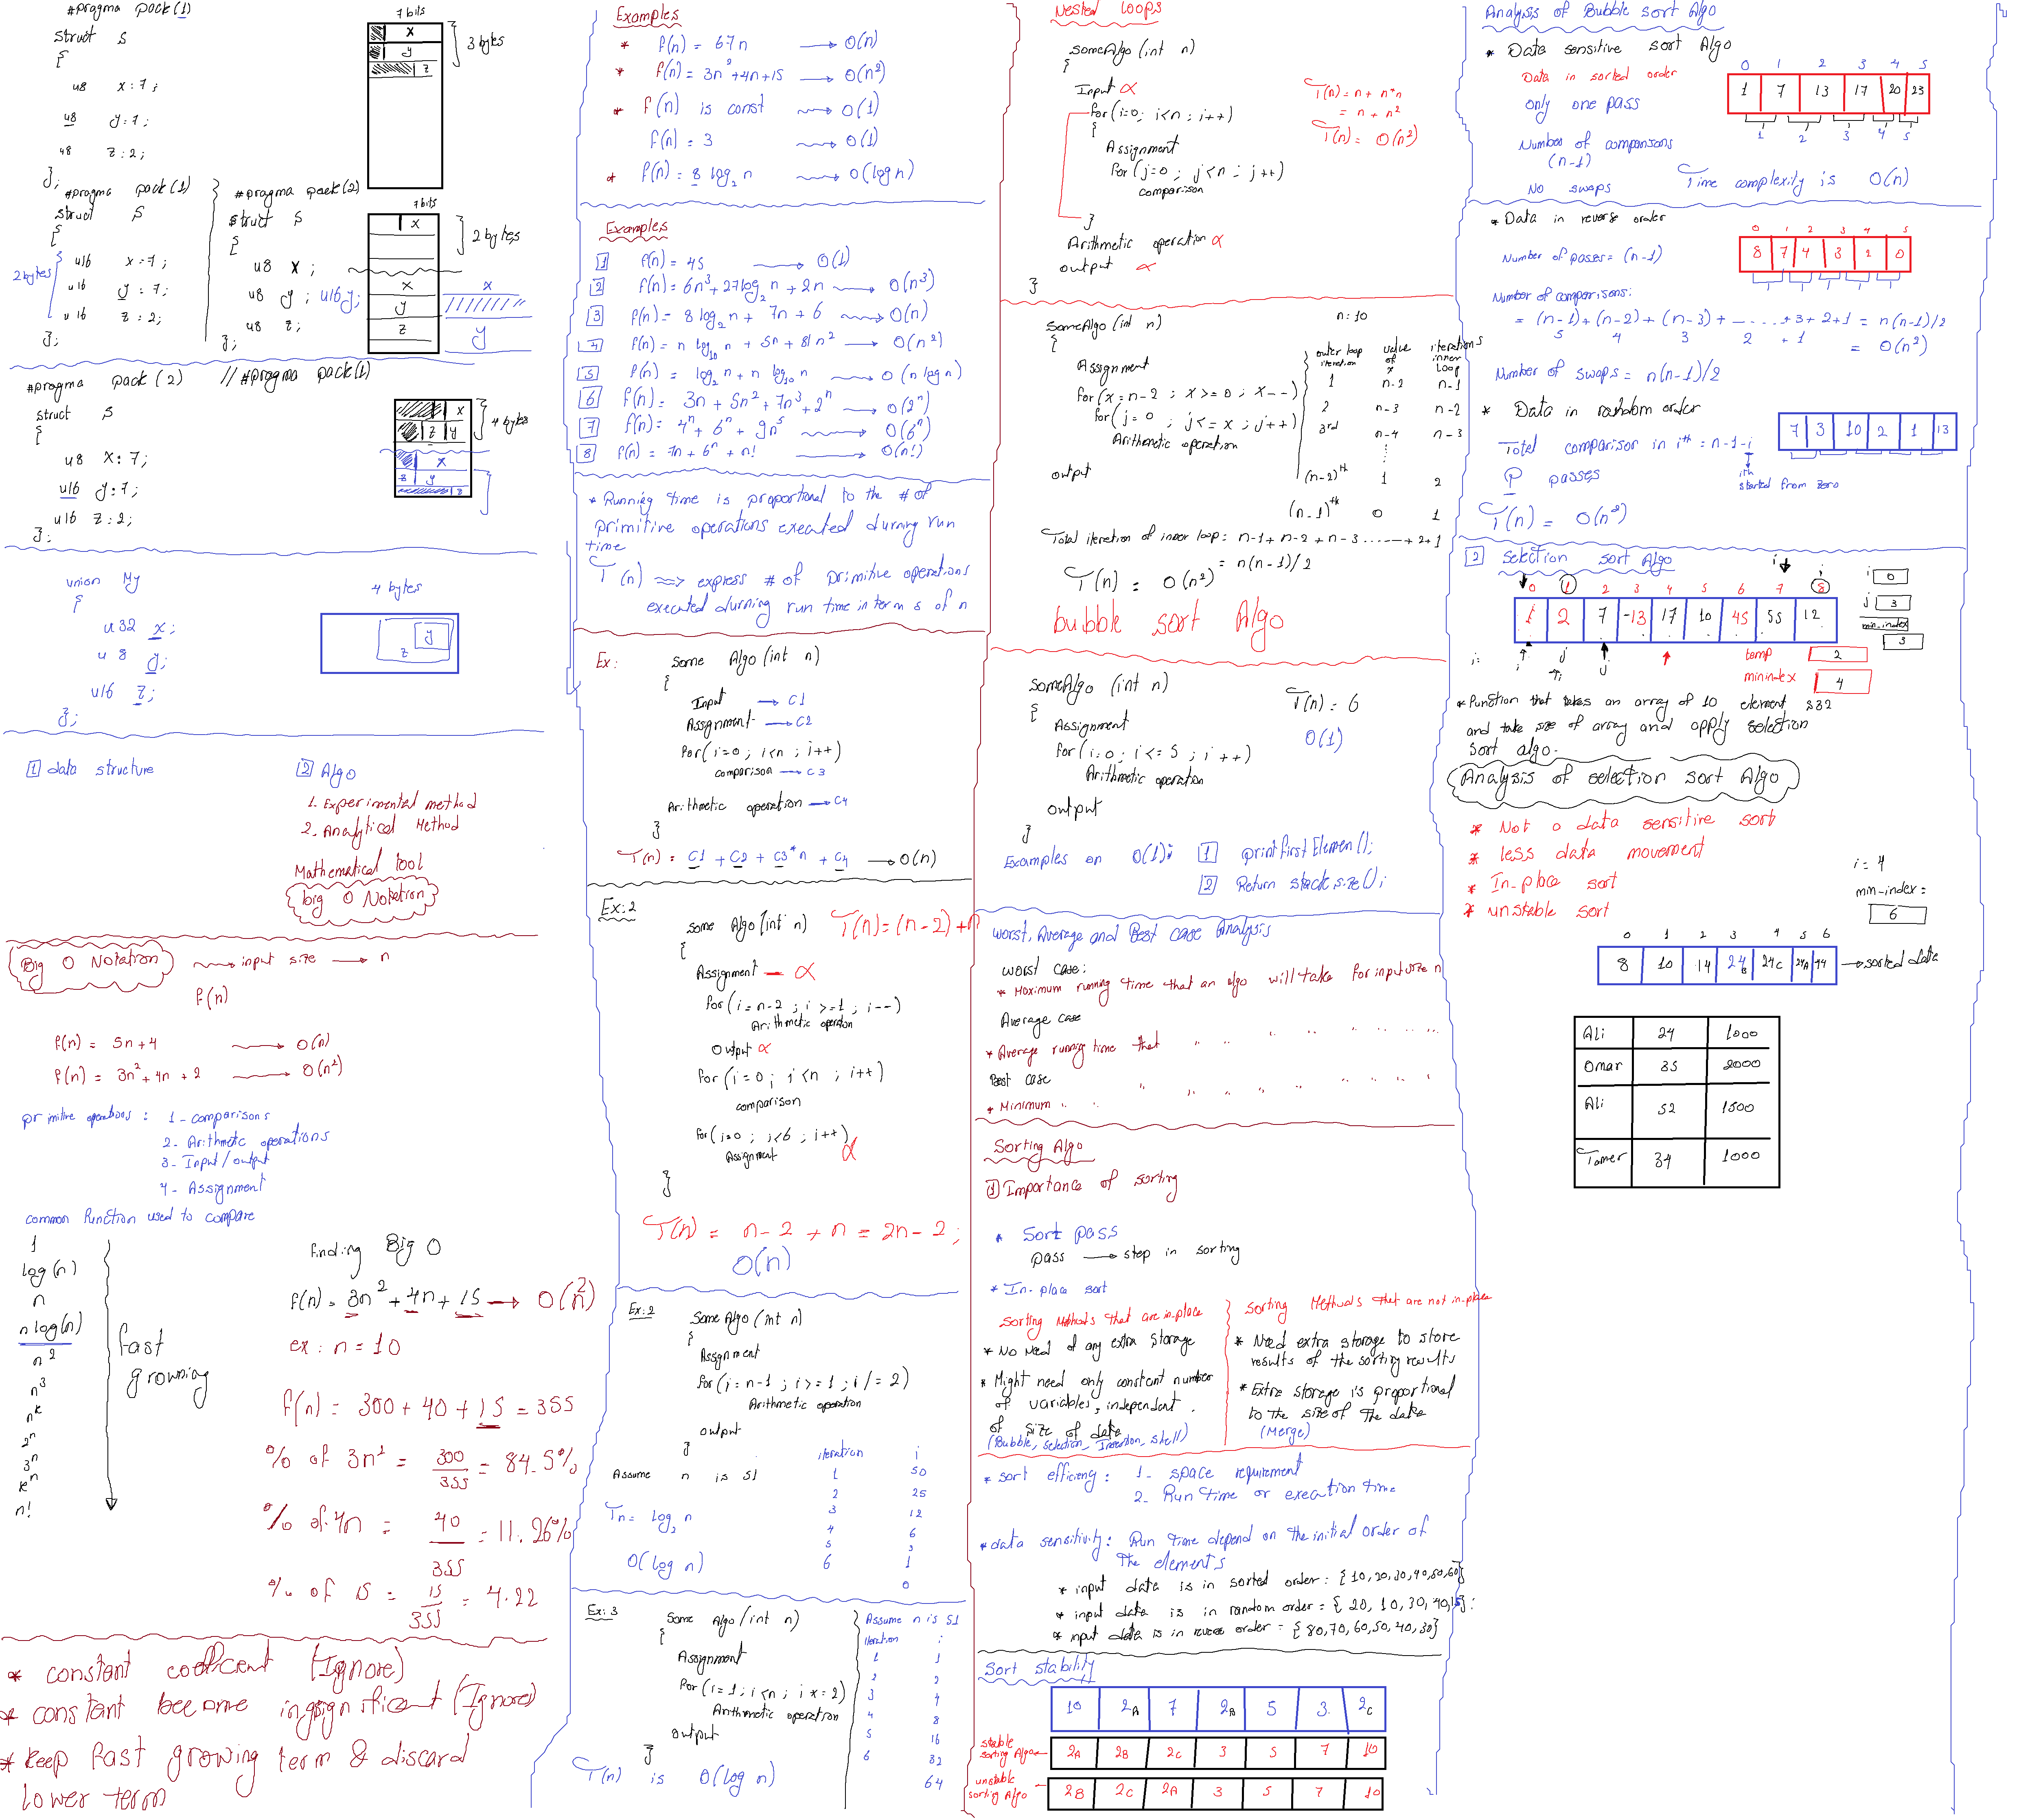 #pragma pack(1)
struct S
{
u8 x:7;
u8 y:7;
u8 z:2;
};
7 bits
x
y
z
3 bytes
#pragma pack(1)
struct S
{
u16 x=7;
u16 y=7;
u16 z=2;
};
2 bytes
#pragma pack(2)
struct S
{
u8 x;
u8 y; u16 y;
u8 z;
};
7 bits
x
2 bytes
x
y
z
x
y
#pragma pack(2) //#pragma pack(1)
struct S
{
u8 x:7;
u16 y:7;
u16 z:2;
};
x
z y
4 bytes
x
z y
z
union My
{
u32 x;
u8 y;
u16 z;
};
4 bytes
y
z
1 data structure
2 Algo
1. Experimental method
2. Analytical Method
Mathematical tool
big O Notation
Big O Notation → input size → n
f(n)
f(n) = 5n+4 → O(n)
f(n) = 3n²+4n+2 → O(n²)
primitive operations: 1- comparisons
2- Arithmetic operations
3- Input/output
4- Assignment
common function used to compare
1
log(n)
n
n log(n)
n²
n³
n^k
2^n
3^n
k^n
n!
fast growning
finding Big O
f(n)= 3n²+4n+15 → O(n²)
ex: n=10
f(n) = 300+40+15=355
% of 3n² = 300/355 = 84.5%
% of 4n = 40/355 = 11.26%
% of 15 = 15/355 = 4.22
* constant coefficent (Ignore)
* constant become insignificent (Ignore)
* keep fast growing term & discard
lower term
Examples
* f(n) = 67n → O(n)
* f(n) = 3n²+4n+15 → O(n²)
* f(n) is const → O(1)
f(n) = 3 → O(1)
* f(n) = 8 log₂ n → O(log n)
Examples
1 f(n) = 45 → O(1)
2 f(n) = 6n³+27log₂n+2n → O(n³)
3 f(n) = 8 log₂ n + 7n + 6 → O(n)
4 f(n) = n log₁₀ n + 5n + 81n² → O(n²)
5 f(n) = log₂ n + n log₁₀ n → O(n log n)
6 f(n) = 3n + 5n² + 7n³ + 2^n → O(2^n)
7 f(n) = 4^n + 6^n + 9n⁵ → O(6^n)
8 f(n) = 7n + 6^n + n! → O(n!)
* Running time is proportional to the # of
primitive operations executed durning run
time
T(n) ⟹ express # of primitive operations
executed durning run time in terms of n
Ex:
Some Algo (int n)
{
Input → C1
Assignment → C2
for(i=0; i<n; i++)
comparison → C3
Arithmetic operation → C4
}
T(n) = C1 + C2 + C3*n + C4 → O(n)
Ex:2
some Algo (int n) T(n)=(n-2)+n
{
Assignment - α
for(i=n-2; i>=1; i--)
Arithmetic operation
Output α
for(i=0; i<n; i++)
comparison
for(i=0; i<6; i++)
Assignment α
}
T(n) = n-2+n = 2n-2;
O(n)
Ex:2
Some Algo (int n)
{
Assignment
for(i=n-1; i>=1; i/=2)
Arithmetic operation
output
}
Assume n is 51
Tn = log₂ n
O(log n)
iteration i
1 50
2 25
3 12
4 6
5 3
6 1
0
Ex:3
Some Algo (int n)
{
Assignment
for(i=1; i<n; i*=2)
Arithmetic operation
output
}
T(n) is O(log n)
Assume n is 51
iteration i
1 1
2 2
3 4
4 8
5 16
6 32
64
Nested Loops
someAlgo (int n)
{
Input α
for(i=0; i<n; i++)
{
Assignment
for(j=0; j<n; j++)
comparison
}
Arithmetic operation α
output α
}
T(n)= n+ n*n
= n + n²
T(n)= O(n²)
SomeAlgo (int n)
{
Assignment
for(x=n-2; x>=0; x--)
for(j=0; j<=x; j++)
Arithmetic operation
output
n:10
outer loop iteration value of x iterations inner loop
1 n-2 n-1
2 n-3 n-2
3rd n-4 n-3
(n-2)th 1 2
(n-1)th 0 1
Total iteration of inner loop: n-1+n-2+n-3......+2+1
= n(n-1)/2
T(n) = O(n²)
bubble sort Algo
someAlgo (int n)
{
Assignment
for(i=0; i<=5; i++)
Arithmetic operation
output
}
T(n)= 6
O(1)
Examples on O(1): 1 printfirstElemen();
2 Return stack.size();
worst, Average and Best case Analysis
worst case:
* Maximum running time that an algo will take for input size n
Average case
* Average running time that " " " " " " "
Best case
* Minimum " " " " " " " "
Sorting Algo
1 Importance of sorting
* Sort pass
pass → step in sorting
* In-place sort
Sorting Methods that are in-place
* No Need of any extra storage
* Might need only constant number
of variables, independent.
of size of data
(Bubble, selection, Insertion, shell)
Sorting Methods that are not in-place
* Need extra storage to store
results of the sorting results
* Extra storage is proportional
to the size of the data
(Merge)
* sort efficieny: 1- space requirement
2- Run time or execation time
* data sensitivity: Run time depend on the initial order of
the elements
* input data is in sorted order: {10,20,30,40,50,60}
* input data is in random order = {20, 10, 30, 40, 15}:
* input data is in revese order = {80,70,60,50,40,30}
Sort stability
10 2A 7 2B 5 3 2C
stable sorting Algo 2A 2B 2C 3 5 7 10
unstable sorting Algo 2B 2C 2A 3 5 7 10
Analysis of Bubble sort Algo
* Data sensitive sort Algo
Data in sorted order
only one pass
Number of comparisons
(n-1)
No swaps
Time complexity is O(n)
0 1 2 3 4 5
1 7 13 17 20 23
1 2 3 4 5
* Data in reverse order
0 1 2 3 4 5
8 7 4 3 1 0
Number of passes= (n-1)
Number of comparisons:
= (n-1)+(n-2)+(n-3)+......+3+2+1 = n(n-1)/2
5 4 3 2 + 1 = O(n²)
Number of swaps= n(n-1)/2
* Data in random order
7 3 10 2 1 13
Total comparisor in ith = n-1-i
ith started from zero
P passes
T(n) = O(n²)
2 selection sort Algo
0 1 2 3 4 5 6 7 8
1 2 7 -13 17 10 45 55 12
i 0
j 3
min_index
3
temp 2
minindex 4
* function that takes an array of 10 element s32
and take size of array and apply selection
sort algo.
Analysis of selection sort Algo
* Not a data sensitive sort
* less data movement
* In-place sort
* unstable sort
i=4
min-index=
6
0 1 2 3 4 5 6
8 10 14 24B 24C 24A 44 → sorted data
Ali 24 1000
Omar 35 2000
Ali 52 1500
Tamer 34 1000